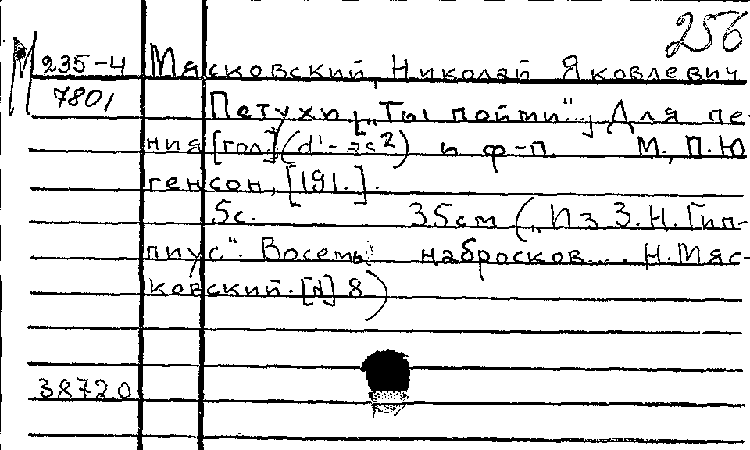 256
М 235-4 Мясковский, Николай Яковлевич
7801 Петухи [„Ты пойми“] Для пе-
ния [гол.] (d'- 2) и ф-п. М., П. Ю
генсон, [191.].
5с. 35см („Из З.Н. Гип-
пиус“. Восемь набросков... Н. Мяс-
ковский. [№] 8)
38720